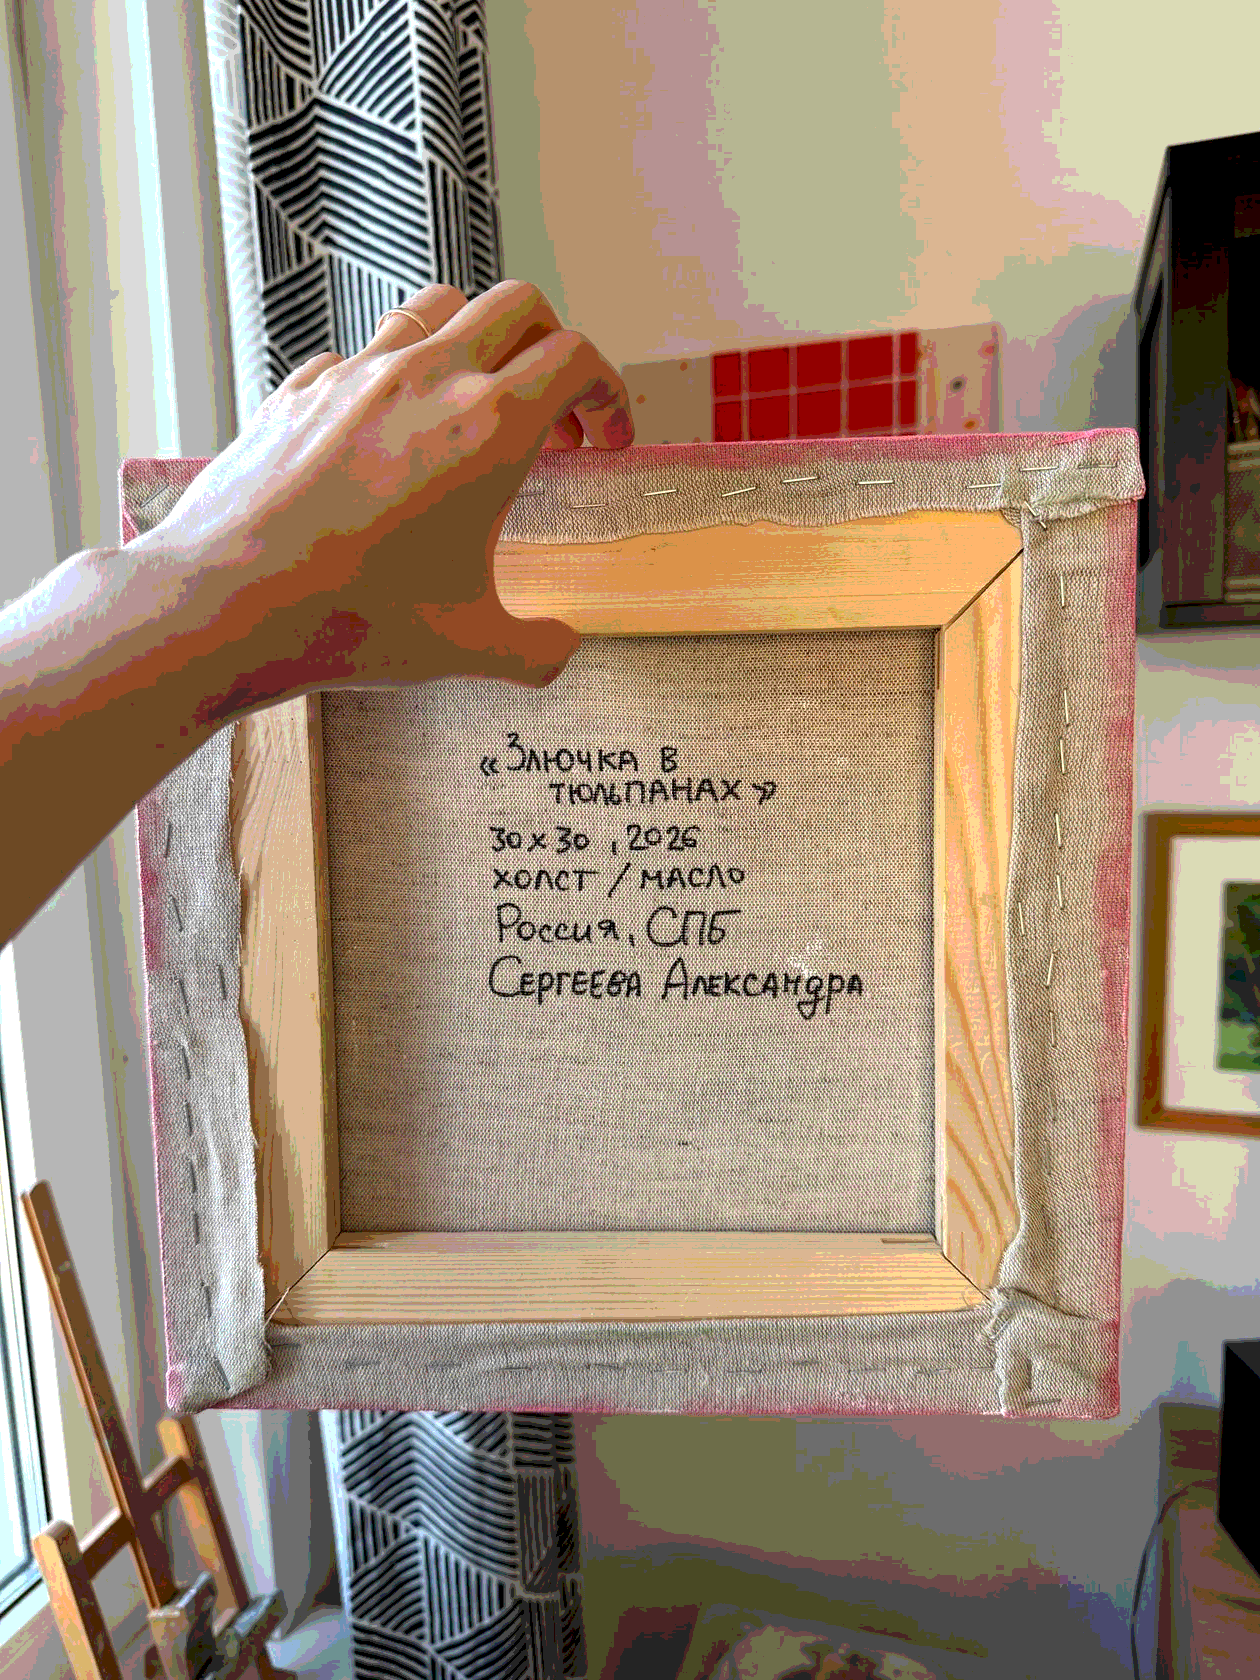 «Злючка в
тюльпанах»
30х30, 2026
холст / масло
Россия, СПБ
Сергеева Александра